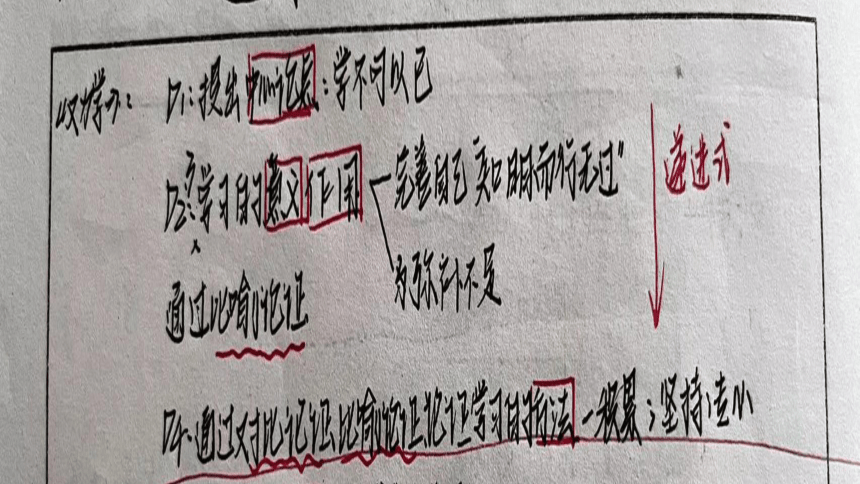 《劝学》： D1：提出中心论点：学不可以已
D2：学习的意义作用 完善自己 知明而行无过"
递进式
为弥补不足
通过比喻论证
D4：通过对比论证、比喻论证论证学习的方法 — 积累；坚持；专心